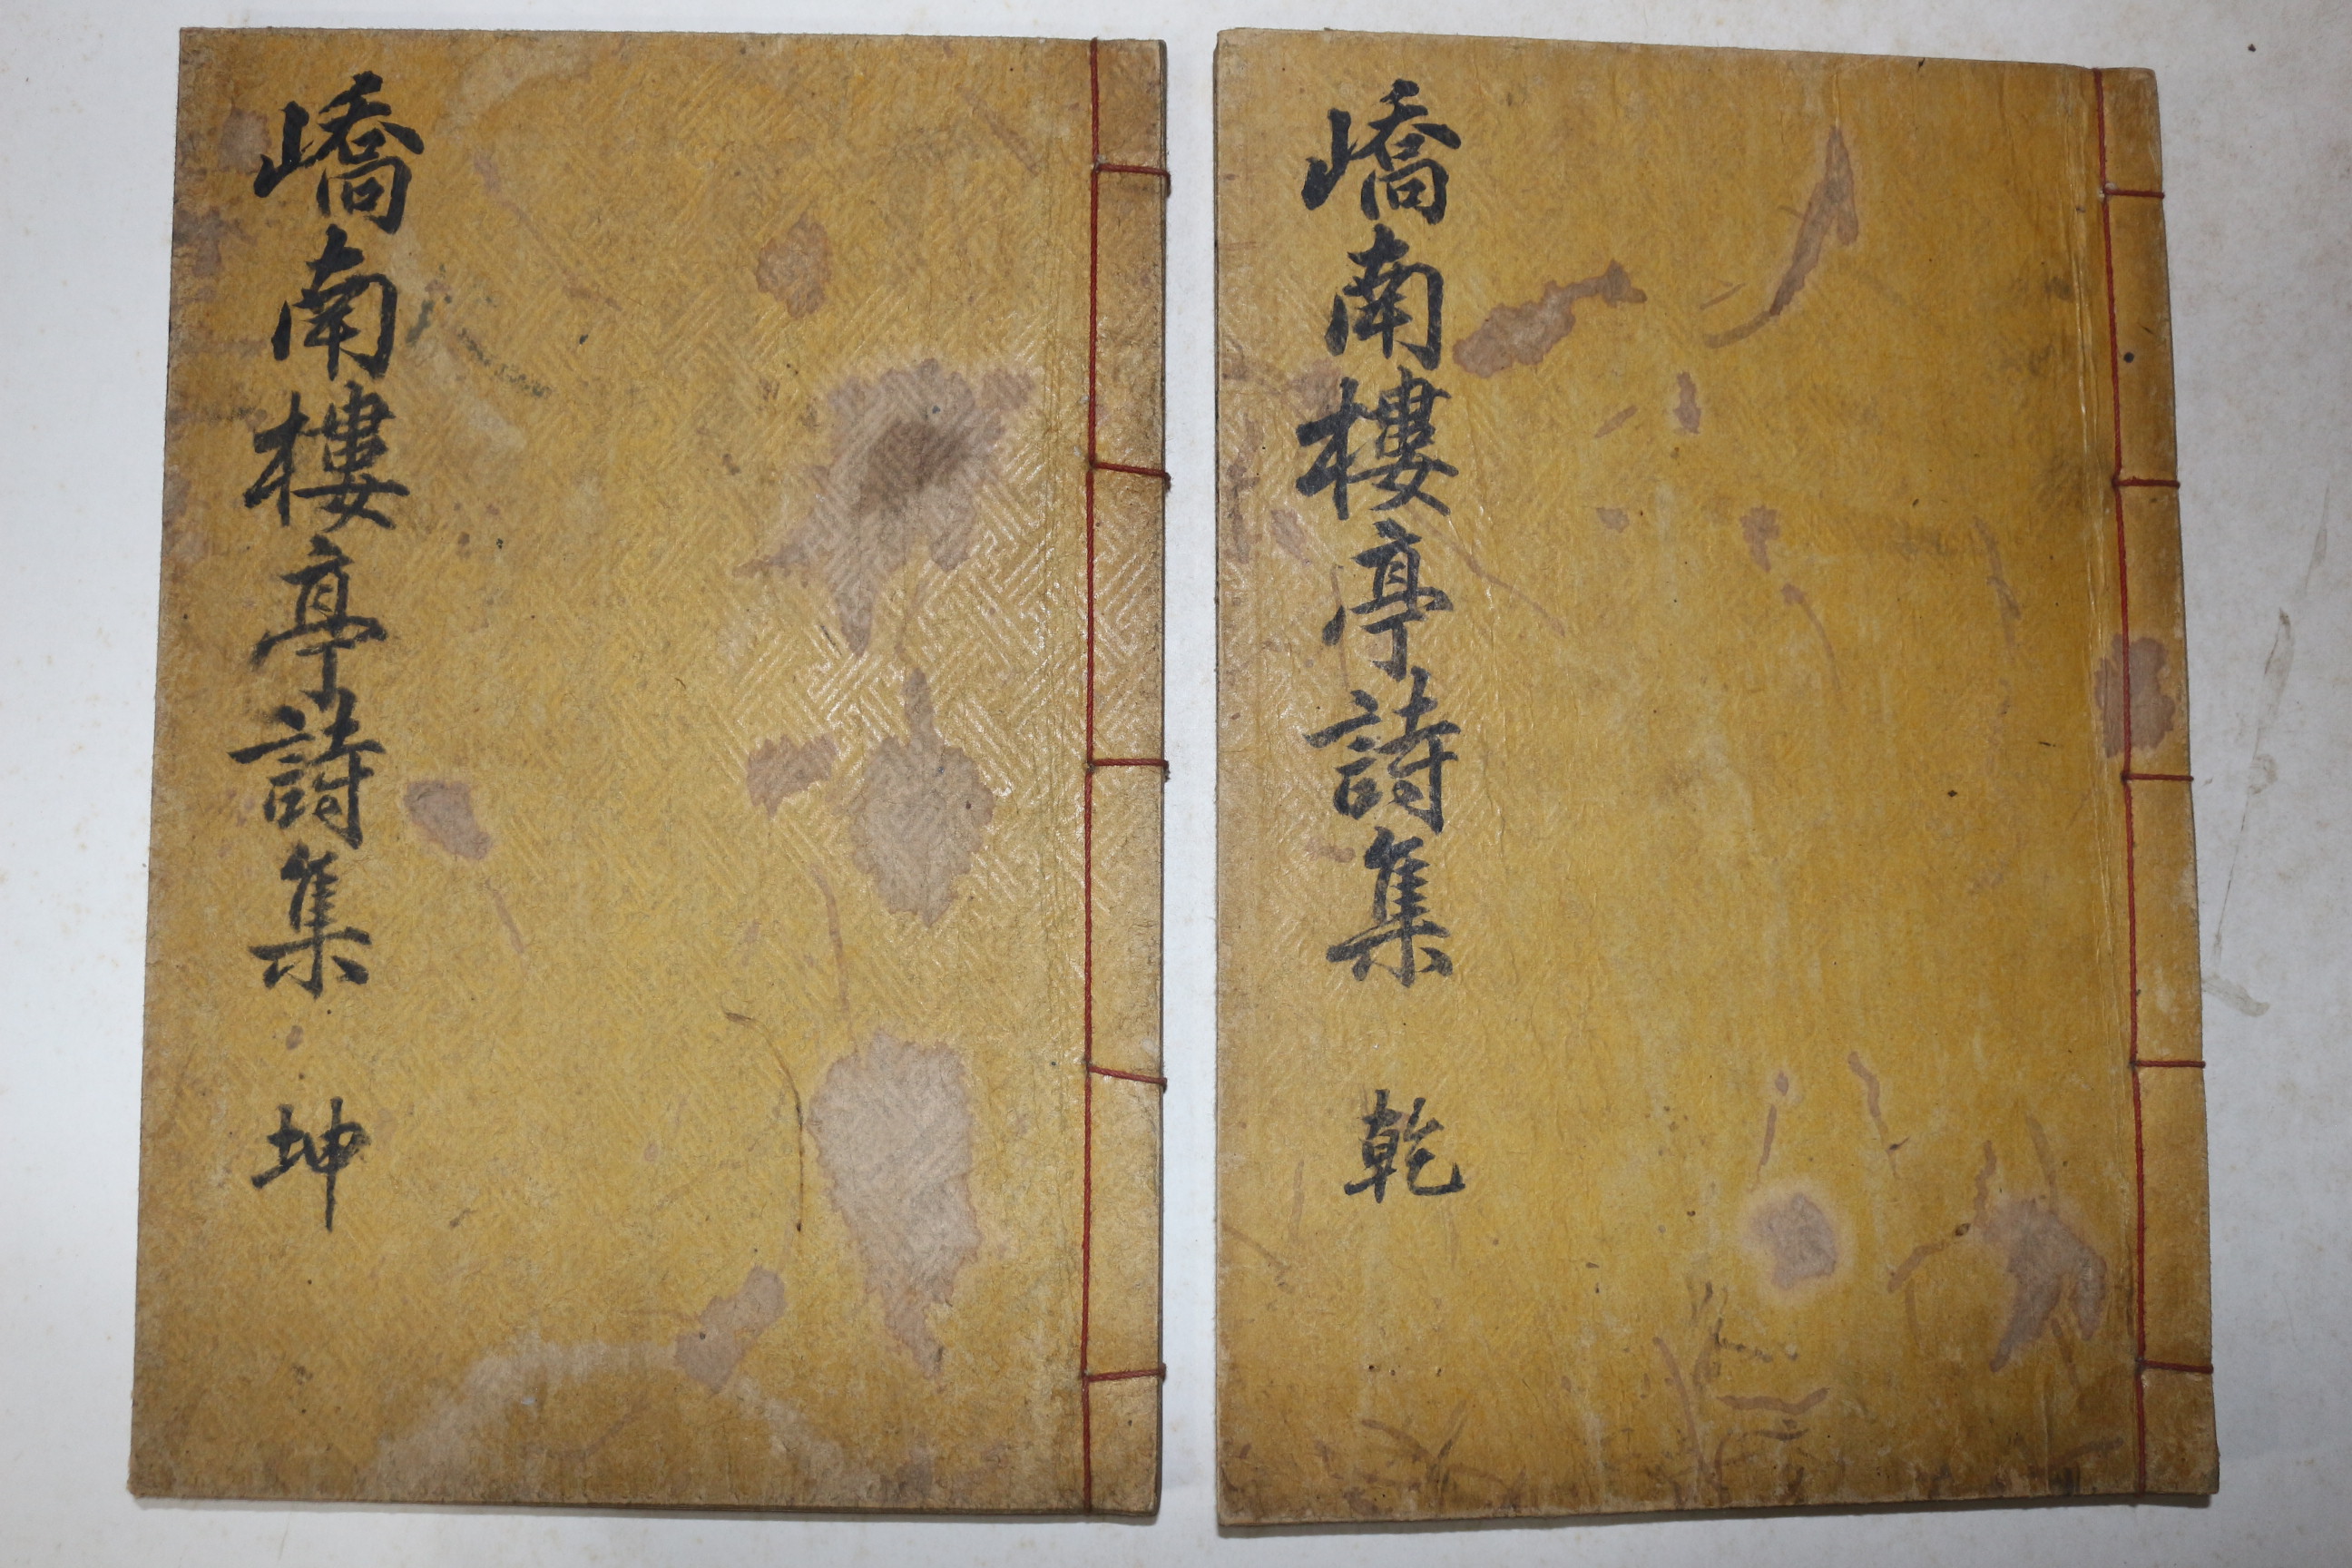 嶠南樓亭詩集 乾
嶠南樓亭詩集 坤